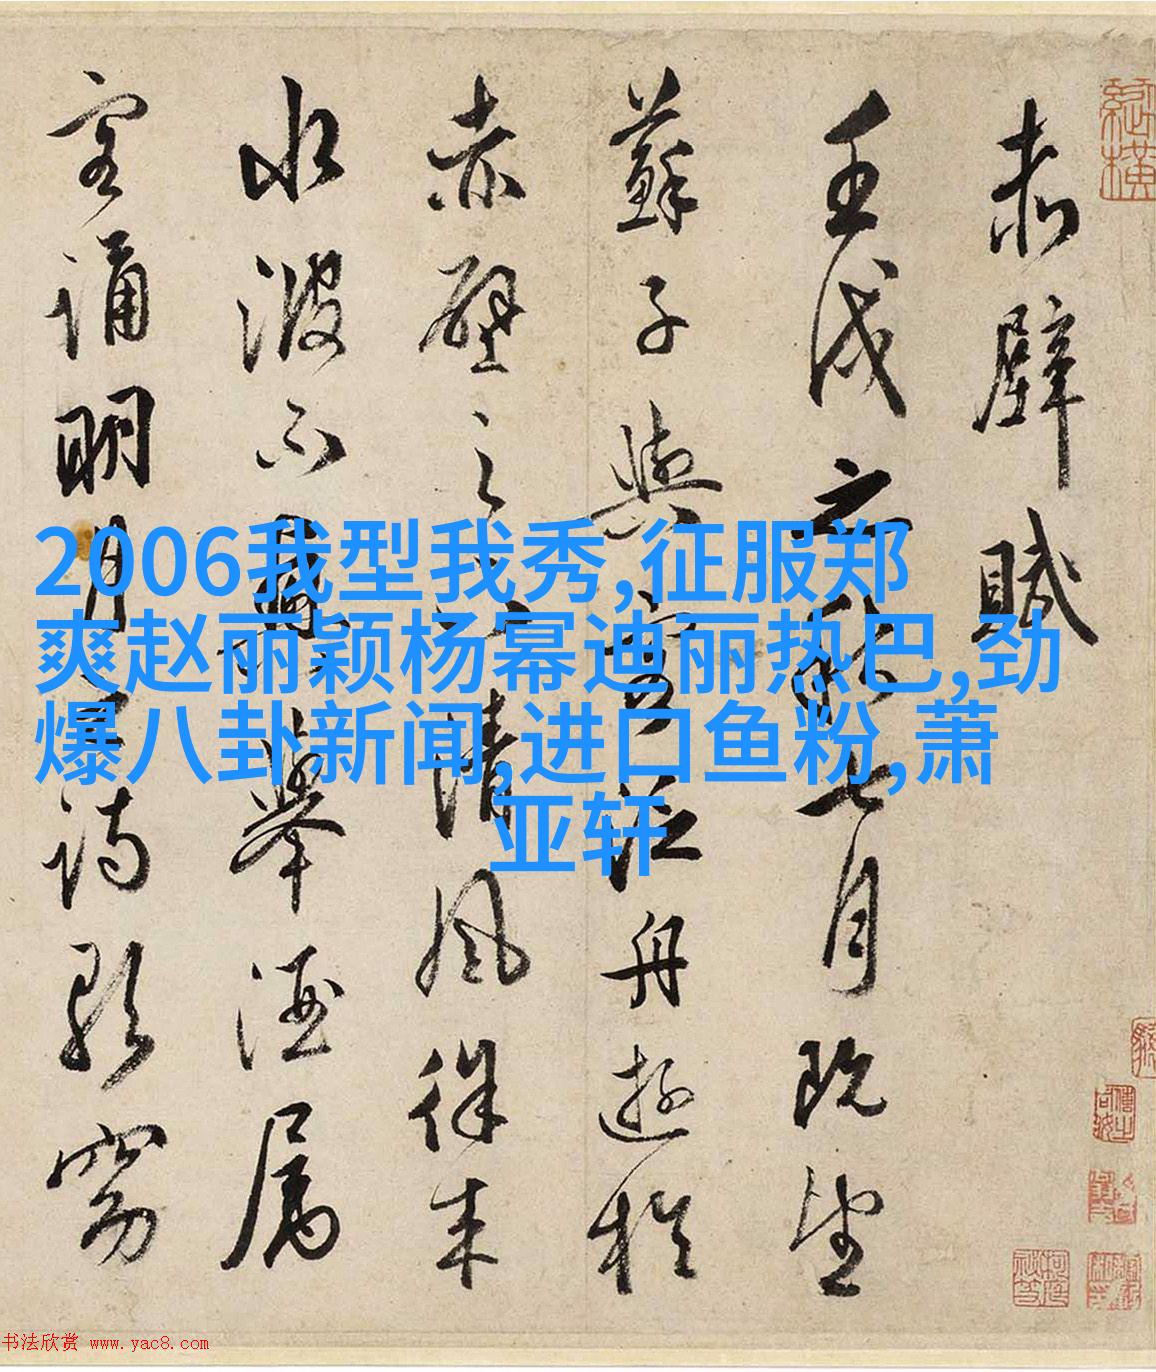 赤壁賦
壬戌之秋七月既望
蘇子與客泛舟遊於
赤壁之下清風徐来
水波不興舉酒属
客誦明月之詩歌窈
2006我型我秀,征服郑
爽赵丽颖杨幂迪丽热巴,劲
爆八卦新闻,进口鱼粉,萧
亚轩
书法欣赏 www.yac8.com